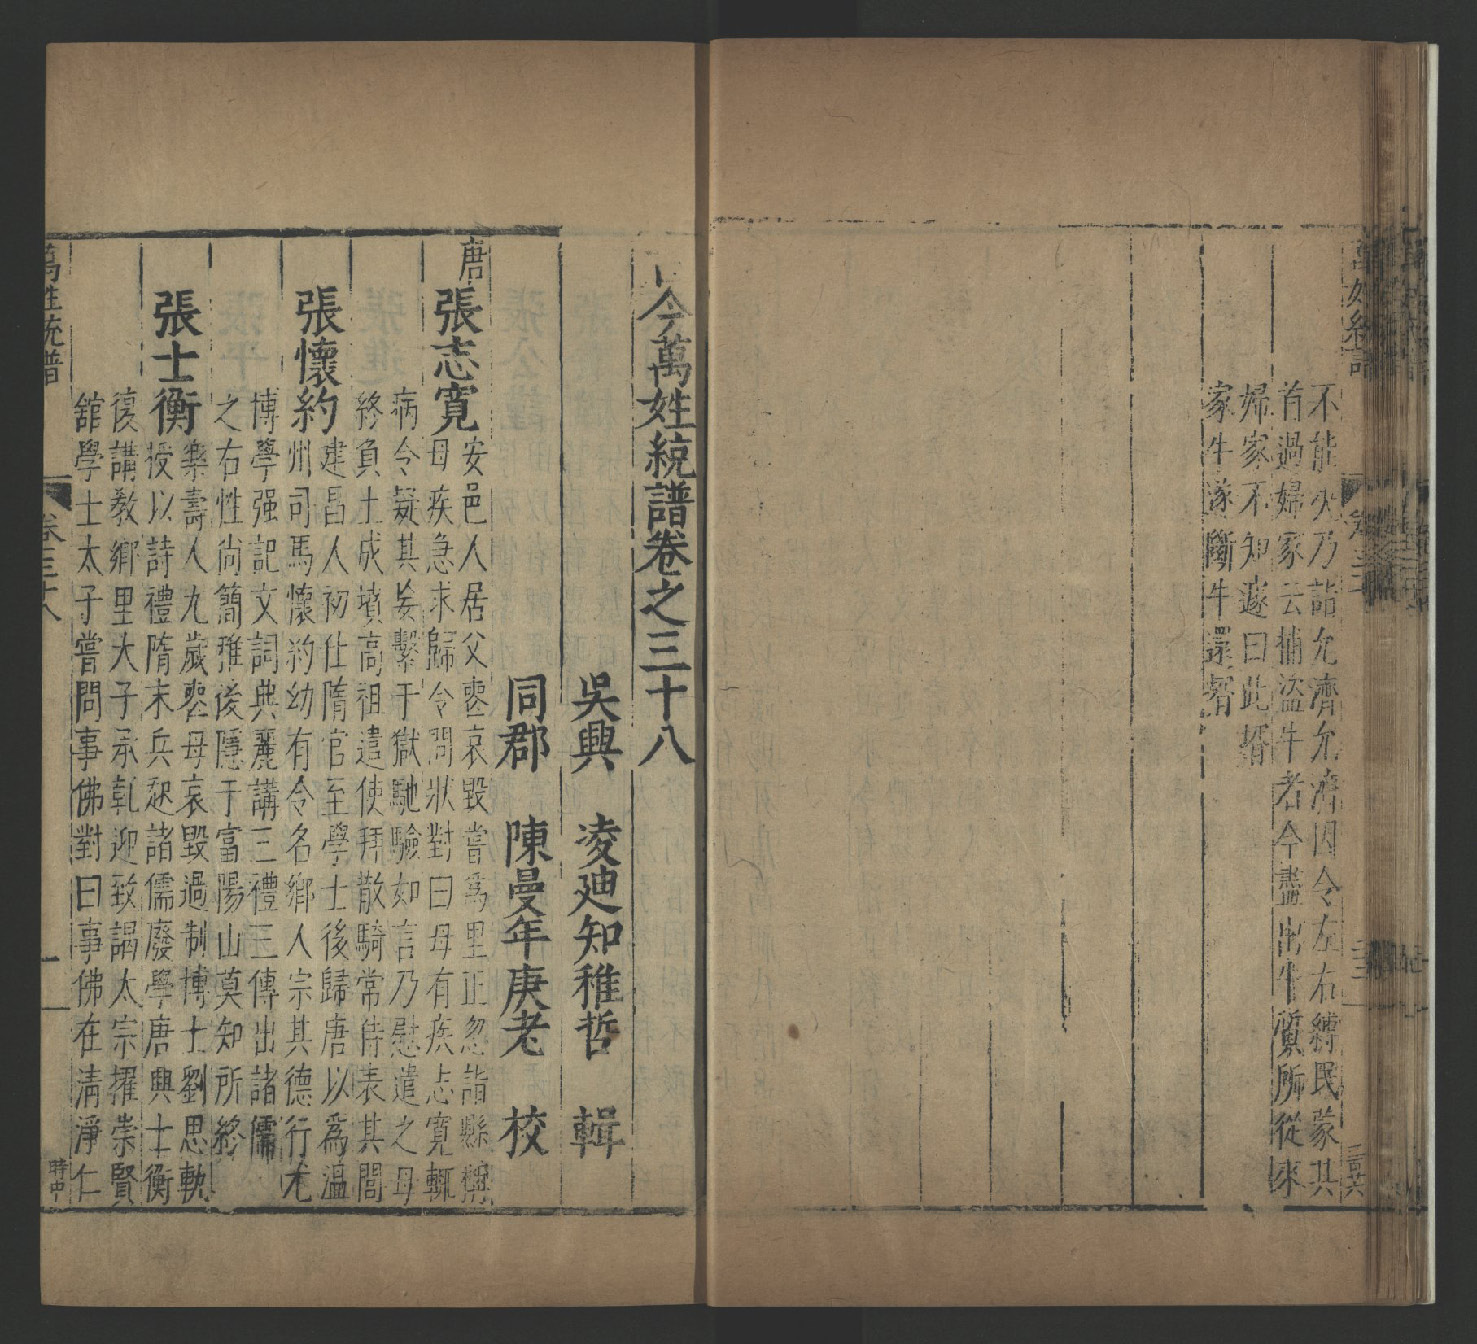 不能火乃詣允濟允濟因令左右縛民蒙其
首過婦家云捕盜牛者令盡出牛質所從來
婦家不知遽曰此壻
家牛遂斷牛還壻
古今萬姓統譜卷之三十八
吳興 凌迪知稚哲 輯
同郡 陳曼年庚老 校
唐
張志寬 安邑人居父喪哀毀嘗爲里正忽詣縣稱
母疾急求歸令問狀對曰母有疾志寬輒
病令疑其妄繫于獄馳驗如言乃慰遣之母
終負土成墳高祖遣使拜散騎常侍表其閭
張懷約 建昌人初仕隋官至學士後歸唐以爲温
州司馬懷約幼有令名鄉人宗其德行尤
博學强記文詞典麗講三禮三傳出諸儒
之右性尚簡雅後隱于富陽山莫知所終
張士衡 樂壽人九歲喪母哀毀過制博士劉思軌
授以詩禮隋末兵起諸儒廢學唐興士衡
復講教鄉里大子承乾迎致謁太宗擢崇賢
舘學士太子嘗問事佛對曰事佛在清淨仁
萬姓統譜 卷三十八 一 時中